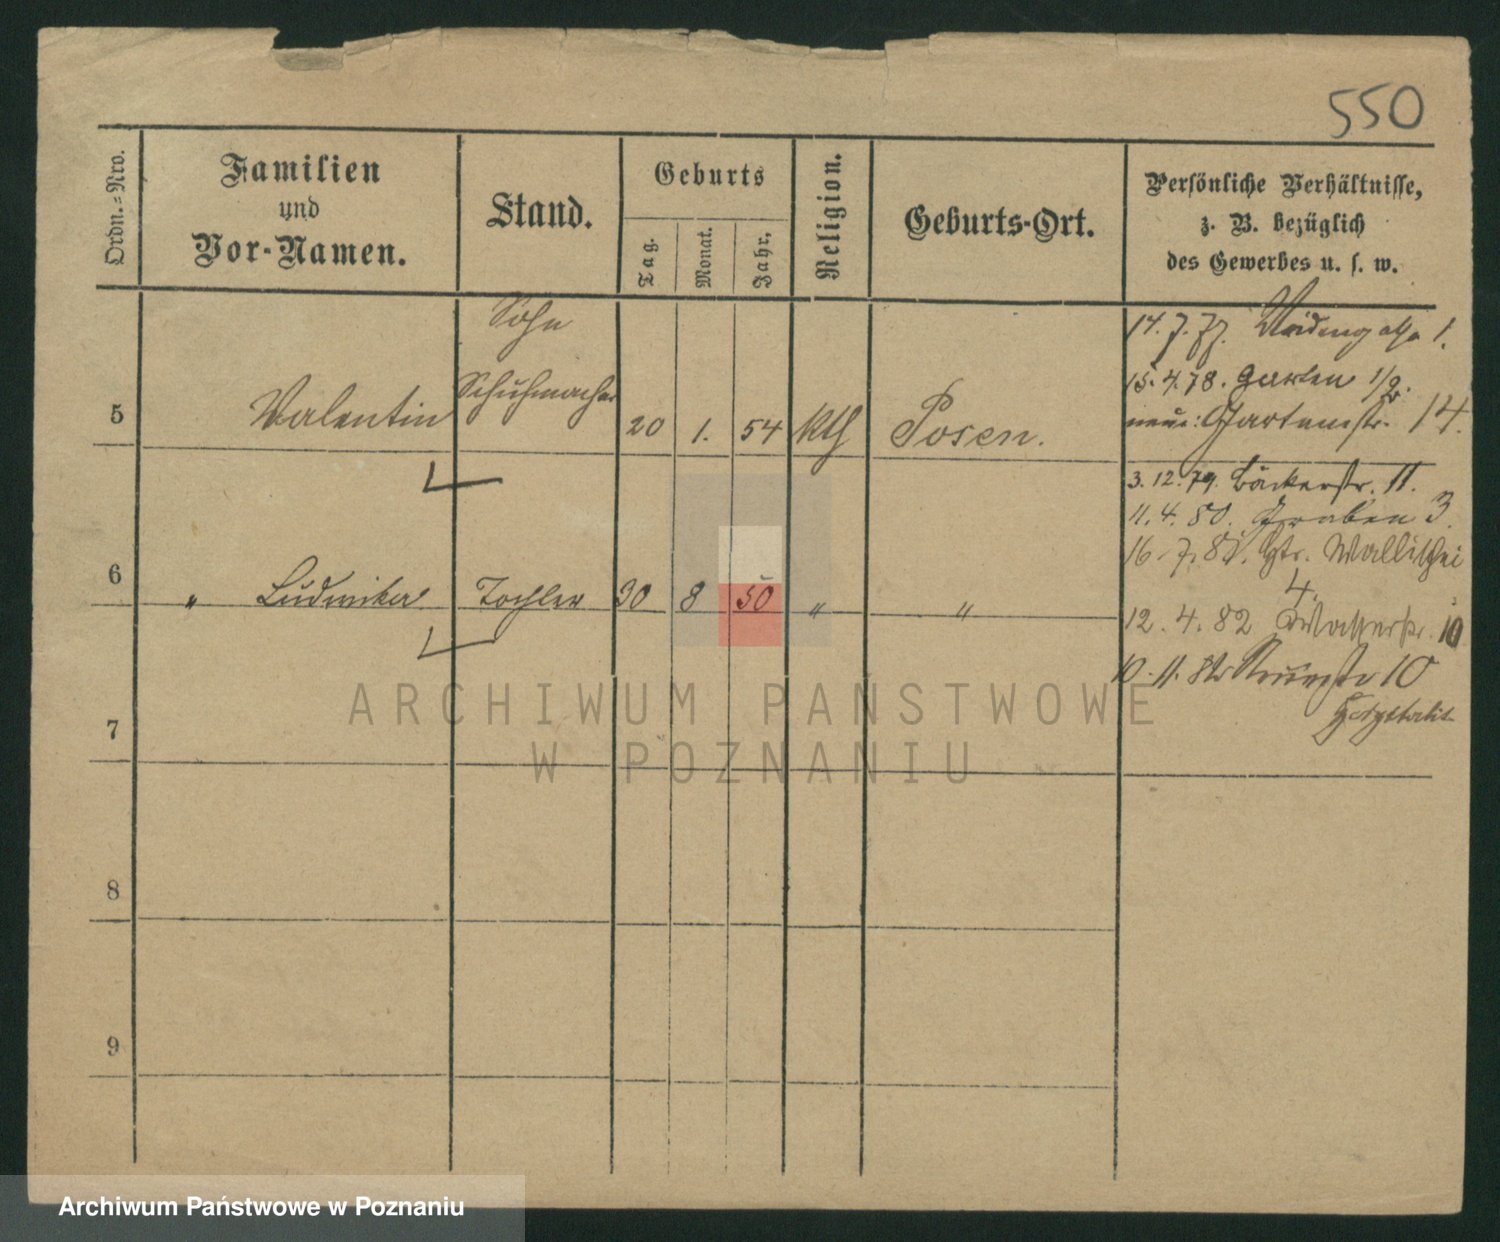 550
Ordn.-Nro.
Familien
und
Vor-Namen.
Stand.
Geburts
Tag.
Monat.
Jahr.
Religion.
Geburts-Ort.
Persönliche Verhältnisse,
z. B. bezüglich
des Gewerbes u. s. w.
5
Valentin
Sohn
Schuhmacher
20
1.
54
kth
Posen.
14. 7. 77. 1.
15. 4. 78. Garten 1/2.
neue: Gartenstr. 14.
6
" Ludwika
Tochter
30
8
50
"
"
3. 12. 79. Bäckerstr. 11.
11. 4. 80. Graben 3.
16. 7. 81. Wallischei
4.
12. 4. 82 10
10. 11. 10
7
8
9
ARCHIWUM PAŃSTWOWE
W POZNANIU
Archiwum Państwowe w Poznaniu